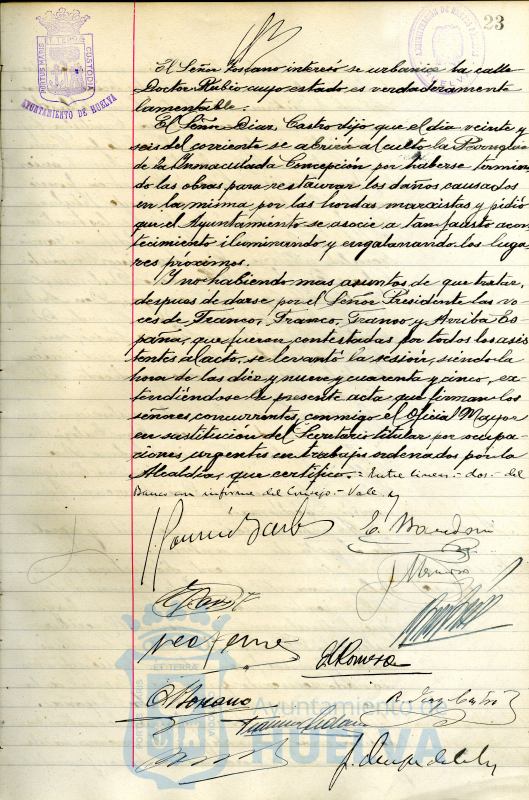 23
PORTUS MARIS ET TERRAE CUSTODIA
AYUNTAMIENTO DE HUELVA
El Señor Toscano interesó se urbanice la calle
Doctor Rubio cuyo estado es verdaderamente
lamentable.
El Señor Diaz Castro dijo que el dia veinte y
seis del corriente se abrirá al culto la Parroquia
de la Inmaculada Concepción por haberse termina
do las obras para restaurar los daños causados
en la misma por las hordas marxistas y pidió
que el Ayuntamiento se asocie a tan fausto acon
tecimiento iluminando y engalanando los luga
res próximos.
Y no habiendo mas asuntos de que tratar,
despues de darse por el Señor Presidente las vo
ces de Franco, Franco, Franco y Arriba Es
paña, que fueron contestadas por todos los asis
tentes al acto, se levantó la sesión, siendo la
hora de las diez y nueve y cuarenta y cinco, ex
tendiéndose la presente acta que firman los
señores concurrentes, conmigo el Oficial Mayor
en sustitución del Secretario titular por ocupa
ciones urgentes en trabajo ordenados por la
Alcaldia, que certifico. = Entre lineas - dos - del
Banco un informe del Consejo.- Vale
E. Romero
PORTUS MARIS ET TERRAE CUSTODIA
Ayuntamiento de
HUELVA